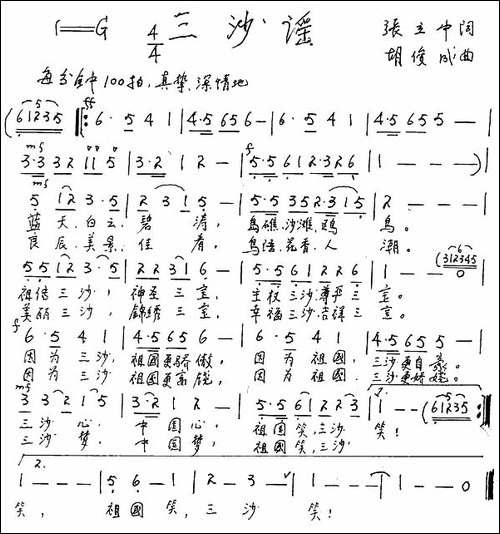 1=G 4/4 三沙谣 張立中詞
胡俊成曲
每分钟100拍,真挚、深情地
(61235 ff ‖: 6· 5 4 1 | 4·5 65 6 - | 6· 5 4 1 | 4·5 65 5 - |
mf 3·3 32 11 5 | 3·2 1 2 - | f 5·5 61 2·3 26 | 1 - - - )
mf 5 12 3·5 | 2 31 5 - | 5·5 35 2·3 15 | 2 - - - |
蓝天、白云、碧涛, 島礁、沙滩、鸥鸟。
良辰、美景、佳肴, 鳥语、花香、人潮。
55 12 3·5 | 22 31 6 - | 5·5 61 22 6 | 1 - - (312345 0
祖传三沙, 神圣三宝, 主权三沙,尊严三宝。
美丽三沙, 錦綉三宝, 幸福三沙,吉祥三宝。
f 6· 5 4 1 | 4·5 65 6 - | 6· 5 4 1 | 4·5 65 5 - |
因为三沙, 祖國更骄傲, 因为祖國, 三沙更自豪。
因为三沙, 祖國更富饶, 因为祖國, 三沙更娇娆。
mf 3 32 1 5 | 3·2 1 2 - | 5·5 61 22 3 | 1. 1 - - (61235 :‖
三沙心, 中国心, 祖国笑,三沙笑!
三沙梦, 中国梦, 祖國笑,三沙
2. 1 - - - | 5 6 - 1 | 2 - 3 - | 1 - - - | 1 - - 0 ‖
笑, 祖國笑,三沙笑!